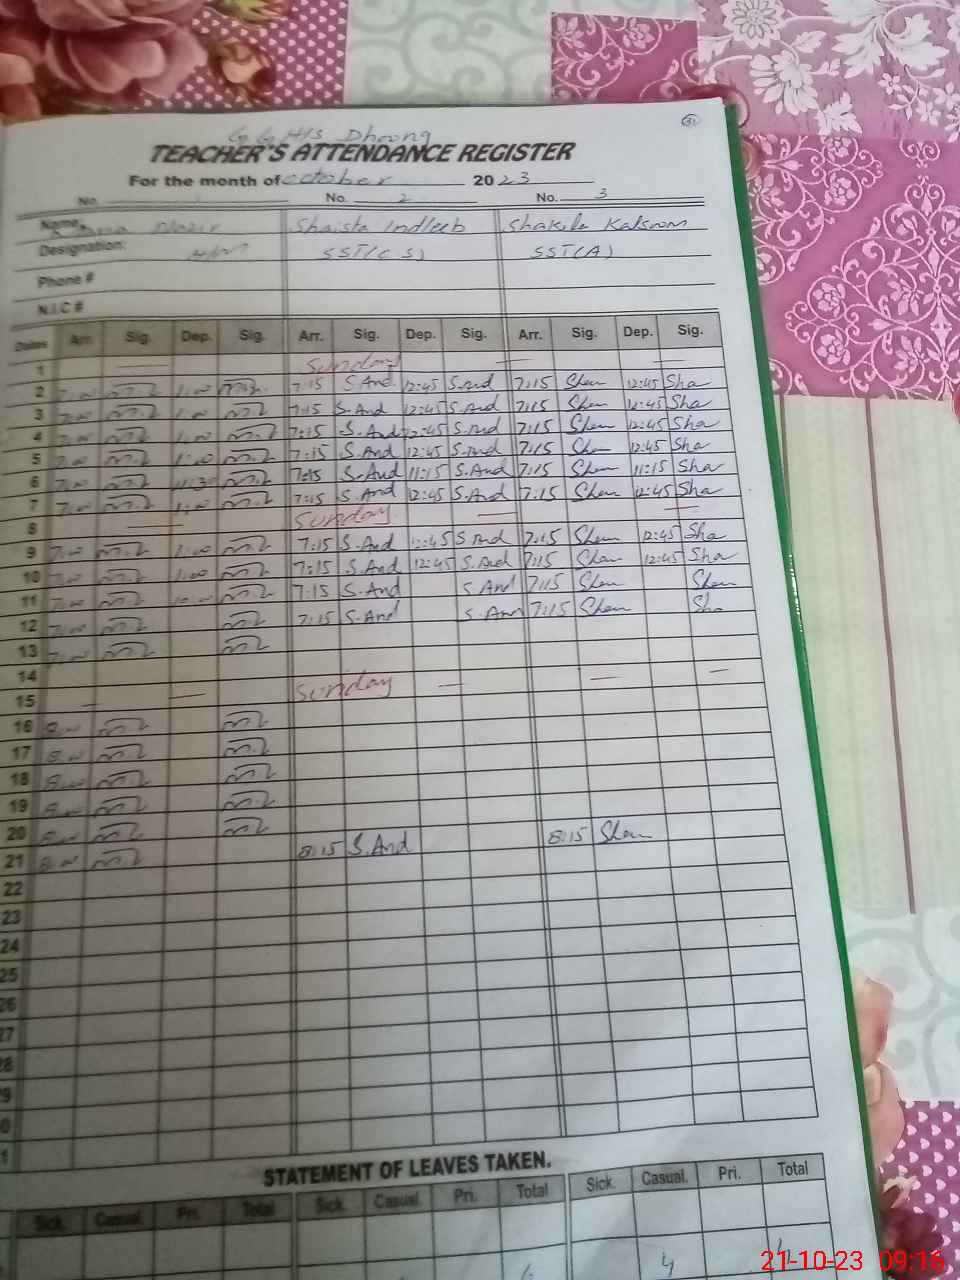 G.G.H/S Dhoong
31
TEACHER'S ATTENDANCE REGISTER
For the month of October 2023
No. 1 No. 2 No. 3
Name. Nazir Shaista Indleeb Shakila Kalsoom
Designation: SST(CS) SST(A)
Phone #
N.I.C #
Dates Arr. Sig. Dep. Sig. Arr. Sig. Dep. Sig. Arr. Sig. Dep. Sig.
1 — Sunday — —
2 7:00 1:00 7:15 S.And 12:45 S.And 7:15 Sham 12:45 Sha
3 7:00 1:00 7:15 S.And 12:45 S.And 7:15 Sham 12:45 Sha
4 7:00 1:00 7:15 S.And 12:45 S.And 7:15 Sham 12:45 Sha
5 7:00 1:00 7:15 S.And 12:45 S.And 7:15 Sham 12:45 Sha
6 7:00 11:30 7:15 S.And 11:15 S.And 7:15 Sham 11:15 Sha
7 7:00 1:00 7:15 S.And 12:45 S.And 7:15 Sham 12:45 Sha
8 — Sunday — —
9 7:00 1:00 7:15 S.And 12:45 S.And 7:15 Sham 12:45 Sha
10 7:00 1:00 7:15 S.And 12:45 S.And 7:15 Sham 12:45 Sha
11 7:00 7:15 S.And S.And 7:15 Sham Sham
12 7:00 7:15 S.And S.And 7:15 Sham Sha
13 7:00
14
15 — — Sunday — — —
16 8:00
17 8:00
18 8:00
19 8:00
20 8:00
21 8:00 8:15 S.And 8:15 Sham
22
23
24
25
26
27
8
9
0
1
STATEMENT OF LEAVES TAKEN.
Sick. Casual. Pri. Total Sick. Casual. Pri. Total Sick. Casual. Pri. Total
4 4
21-10-23 09:16